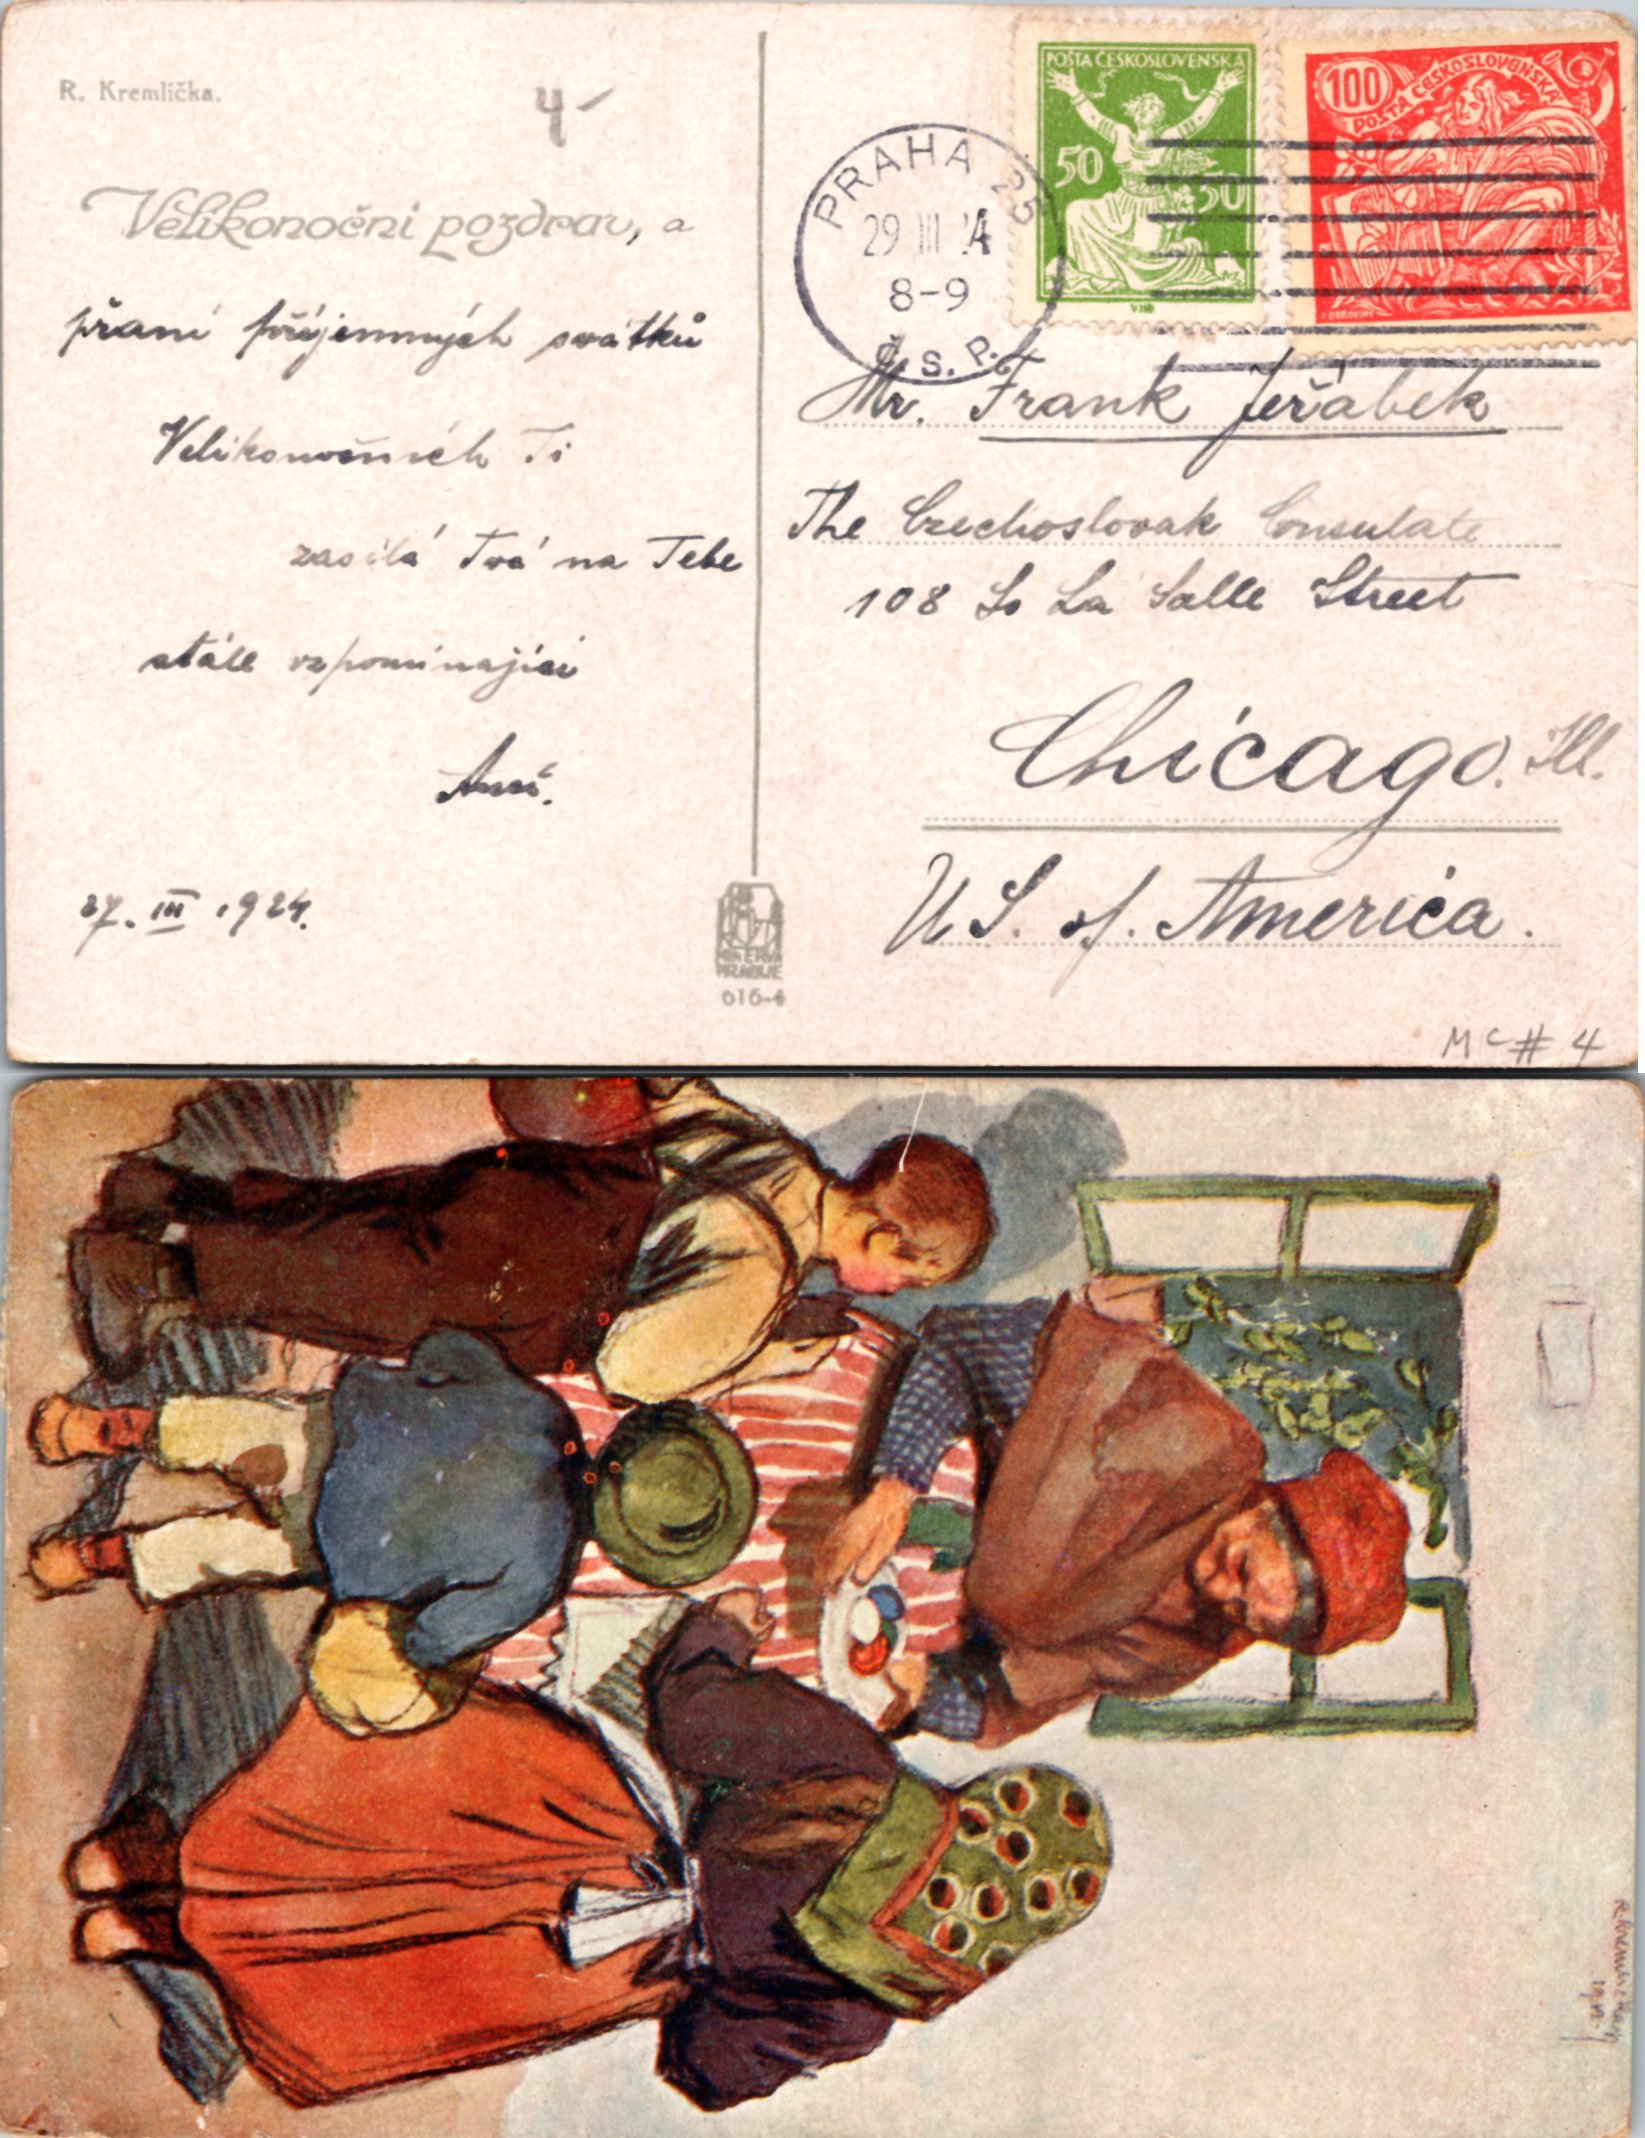 R. Kremlička.
4-
Velikonoční pozdrav, a
přaní příjemných svátků
Velikonočních Ti
zasílá Tvá na Tebe
stále vzpomínající
27. III 1924.
MINERVA
PRAGUE
616-4
POŠTA ČESKOSLOVENSKÁ
50 50
VHB
100
POŠTA ČESKOSLOVENSKÁ
PRAHA 25
29 III 24
8-9
Č.S.P.
Mr. Frank Jeřábek
The Czechoslovak Consulate
108 So La Salle Street
Chicago. Ill.
U S. of. America.
MC # 4